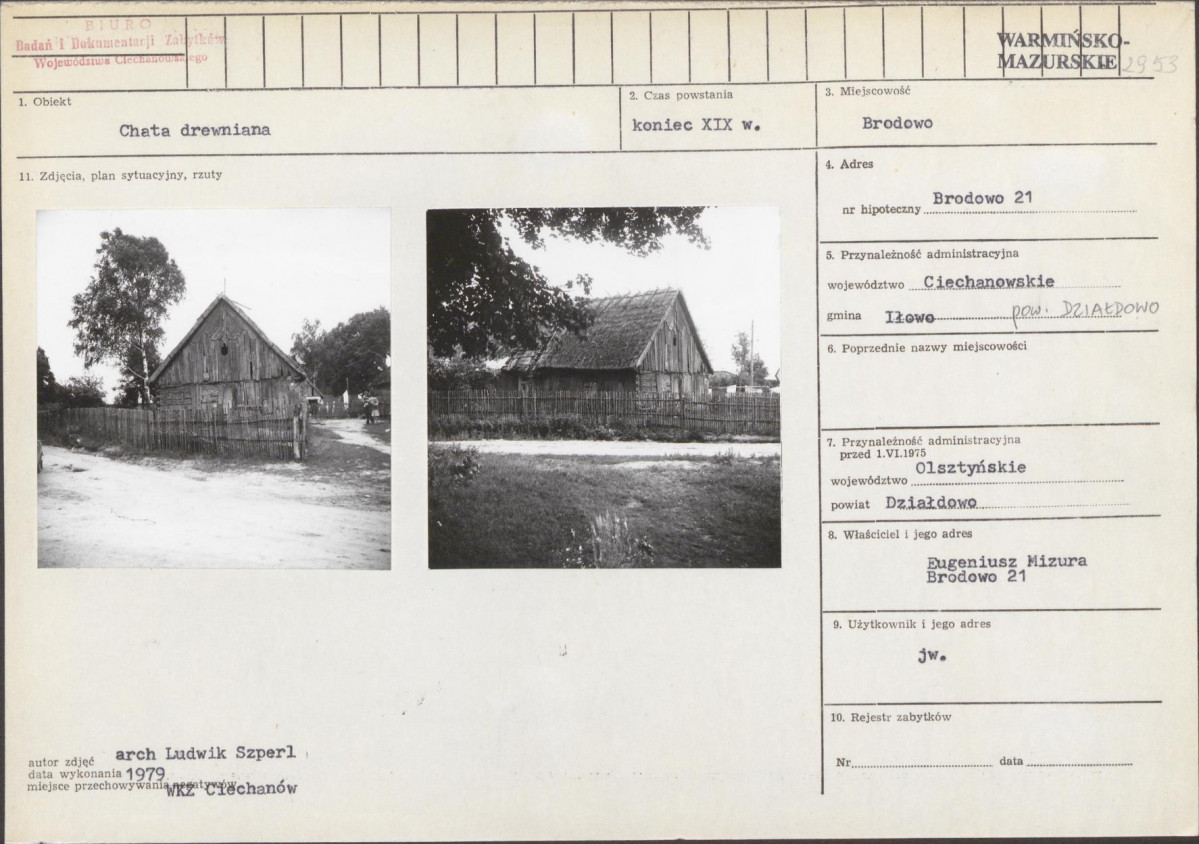 BIURO
Badań i Dokumentacji Zabytków
Województwa Ciechanowskiego
WARMIŃSKO-
MAZURSKIE 2953
1. Obiekt
Chata drewniana
2. Czas powstania
koniec XIX w.
3. Miejscowość
Brodowo
11. Zdjęcia, plan sytuacyjny, rzuty
4. Adres
nr hipoteczny Brodowo 21
5. Przynależność administracyjna
województwo Ciechanowskie
gmina Iłowo pow. DZIAŁDOWO
6. Poprzednie nazwy miejscowości
7. Przynależność administracyjna
przed 1.VI.1975
województwo Olsztyńskie
powiat Działdowo
8. Właściciel i jego adres
Eugeniusz Mizura
Brodowo 21
9. Użytkownik i jego adres
jw.
10. Rejestr zabytków
Nr data
autor zdjęć arch Ludwik Szperl
data wykonania 1979
miejsce przechowywania negatywów
WKZ Ciechanów